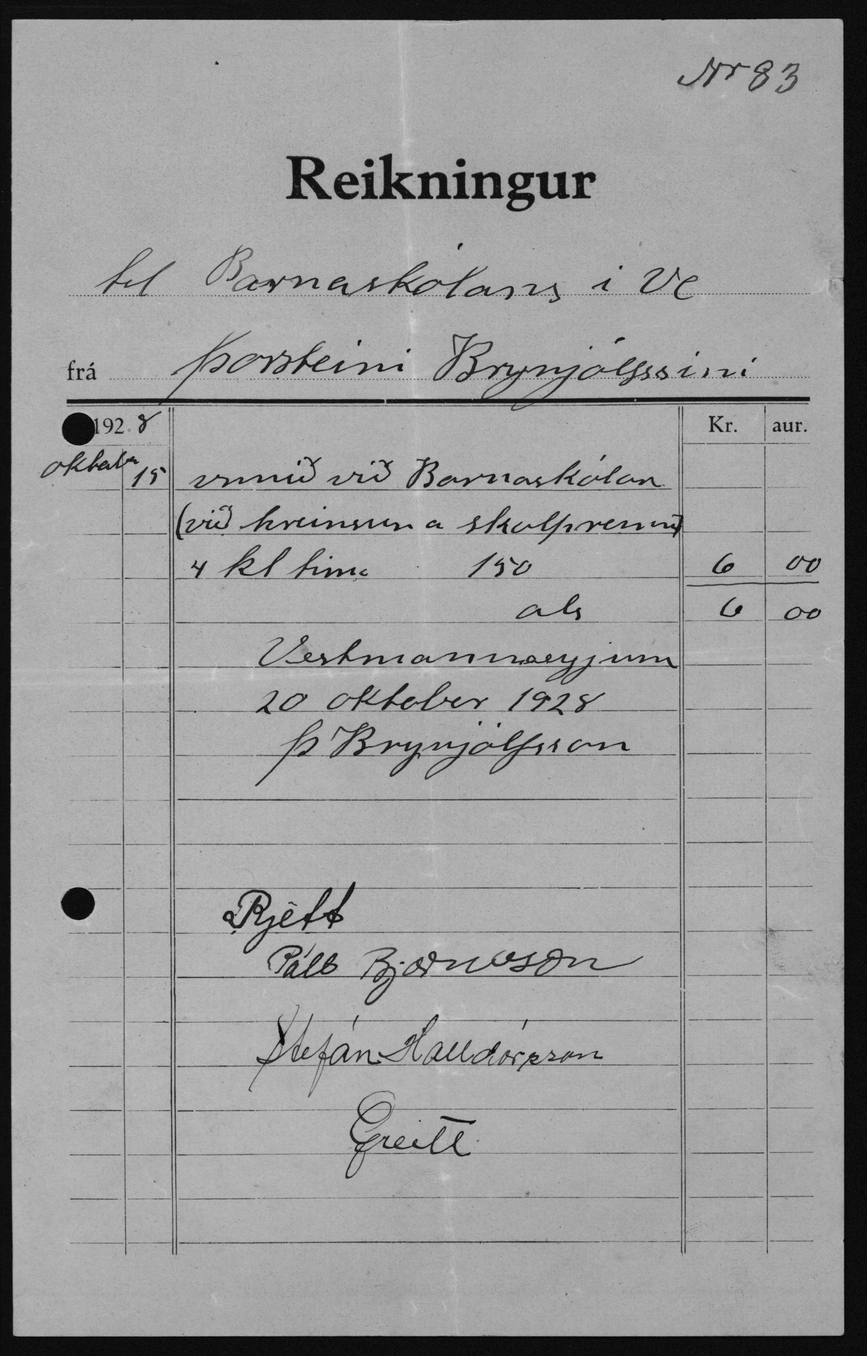 Nr 83
Reikningur
til Barnaskólans i Ve
frá Þorsteini Brynjólfssini
1928 Kr. aur.
oktober 15 unnið við Barnaskólan
(við hreinsun a skolprenni)
4 kl tima 150 6 00
als 6 00
Vestmannaeyjum
20 oktober 1928
Þ Brynjólfsson
Rjett
Páll Bjarnason
Stefán Halldórsson
Greitt